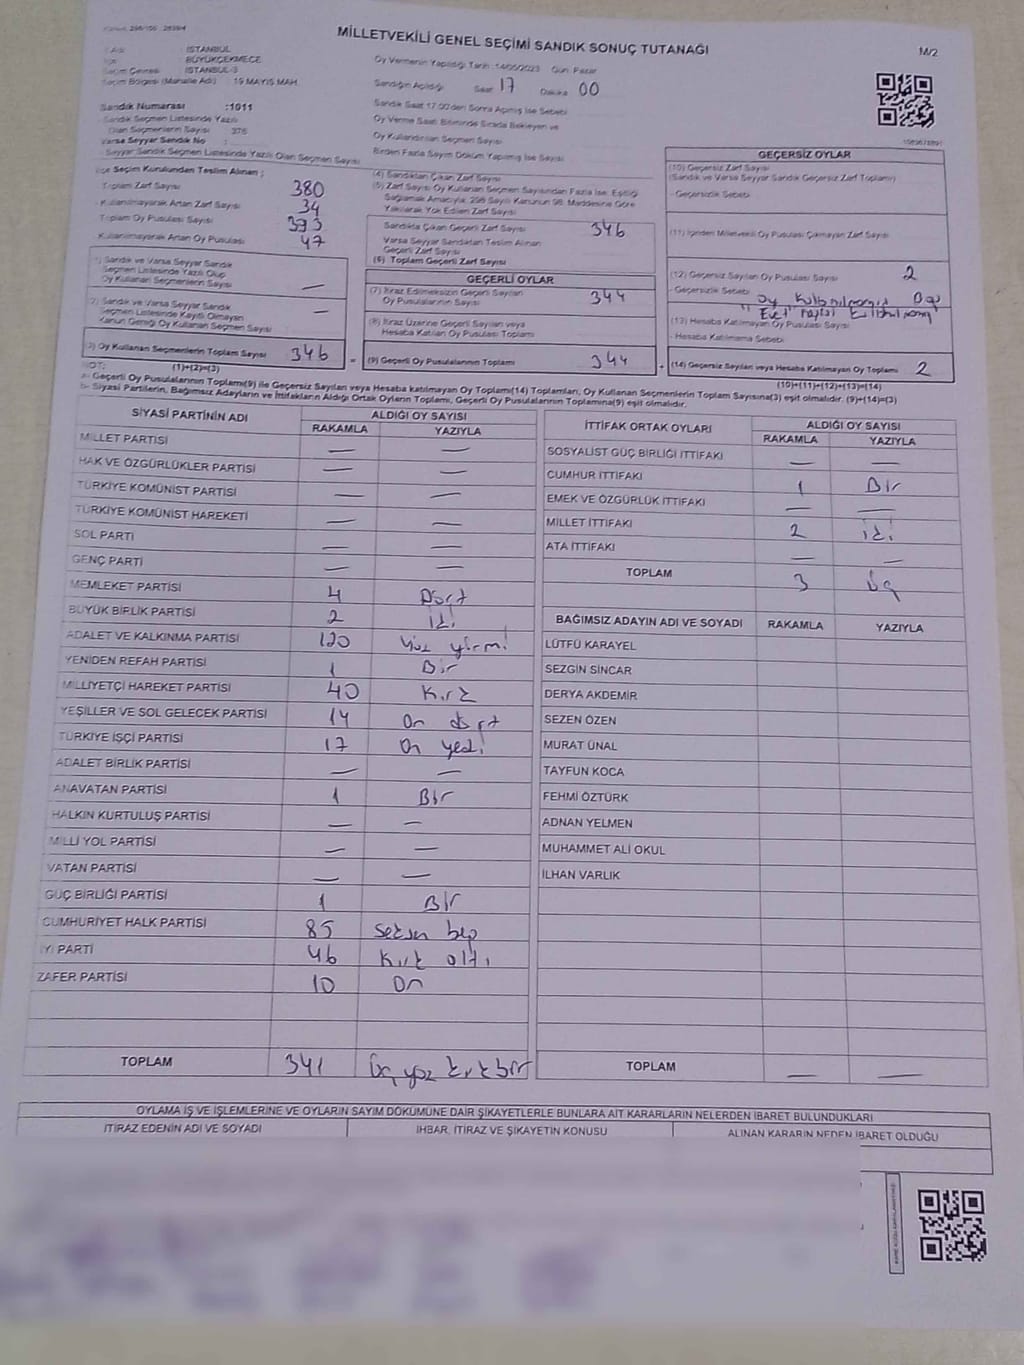 MİLLETVEKİLİ GENEL SEÇİMİ SANDIK SONUÇ TUTANAĞI
M/2
İli Adı : İSTANBUL
BÜYÜKÇEKMECE
Seçim Çevresi İSTANBUL-3
Seçim Bölgesi (Mahalle Adı) : 19 MAYIS MAH.
Sandık Numarası :1011
Sandık Seçmen Listesinde Yazılı
Olan Seçmenlerin Sayısı 376
Varsa Seyyar Sandık No :
Seyyar Sandık Seçmen Listesinde Yazılı Olan Seçmen Sayısı
Oy Vermenin Yapıldığı Tarih :14/05/2023 Gün: Pazar
Sandığın Açıldığı Saat 17 Dakika 00
Sandık Saat 17.00'den Sonra Açılmış İse Sebebi
Oy Verme Saati Bitiminde Sırada Bekleyen ve
Oy Kullandırılan Seçmen Sayısı
Birden Fazla Sayım Döküm Yapılmış İse Sayısı
İlçe Seçim Kurulundan Teslim Alınan ;
Toplam Zarf Sayısı 380
Kullanılmayarak Artan Zarf Sayısı 34
Toplam Oy Pusulası Sayısı 393
Kullanılmayarak Artan Oy Pusulası 47
(1) Sandık ve Varsa Seyyar Sandık
Seçmen Listesinde Yazılı Olup
Oy Kullanan Seçmenlerin Sayısı —
(2) Sandık ve Varsa Seyyar Sandık
Seçmen Listesinde Kayıtlı Olmayan
Kanun Gereği Oy Kullanan Seçmen Sayısı —
(3) Oy Kullanan Seçmenlerin Toplam Sayısı 346
(1)+(2)=(3)
(4) Sandıktan Çıkan Zarf Sayısı
(5) Zarf Sayısı Oy Kullanan Seçmen Sayısından Fazla İse, Eşitliği
Sağlamak Amacıyla, 298 Sayılı Kanunun 98. Maddesine Göre
Yakılarak Yok Edilen Zarf Sayısı
Sandıkta Çıkan Geçerli Zarf Sayısı 346
Varsa Seyyar Sandıktan Teslim Alınan
Geçerli Zarf Sayısı
(6) Toplam Geçerli Zarf Sayısı
GEÇERLİ OYLAR
(7) İtiraz Edilmeksizin Geçerli Sayılan
Oy Pusulalarının Sayısı 344
(8) İtiraz Üzerine Geçerli Sayılan veya
Hesaba Katılan Oy Pusulası Toplamı
= (9) Geçerli Oy Pusulalarının Toplamı 344
GEÇERSİZ OYLAR
(10) Geçersiz Zarf Sayısı
(Sandık ve Varsa Seyyar Sandık Geçersiz Zarf Toplamı)
- Geçersizlik Sebebi
(11) İçinden Milletvekili Oy Pusulası Çıkmayan Zarf Sayısı
(12) Geçersiz Sayılan Oy Pusulası Sayısı 2
- Geçersizlik Sebebi Oy Kullanılmamış Boş
"Evet" mührü
(13) Hesaba Katılmayan Oy Pusulası Sayısı
- Hesaba Katılmama Sebebi
+ (14) Geçersiz Sayılan veya Hesaba Katılmayan Oy Toplamı 2
(10)+(11)+(12)+(13)=(14)
NOT:
a- Geçerli Oy Pusulalarının Toplamı(9) ile Geçersiz Sayılan veya Hesaba katılmayan Oy Toplamı(14) Toplamları, Oy Kullanan Seçmenlerin Toplam Sayısına(3) eşit olmalıdır. (9)+(14)=(3)
b- Siyasi Partilerin, Bağımsız Adayların ve İttifakların Aldığı Ortak Oyların Toplamı, Geçerli Oy Pusulalarının Toplamına(9) eşit olmalıdır.
SİYASİ PARTİNİN ADI ALDIĞI OY SAYISI
RAKAMLA YAZIYLA
MİLLET PARTİSİ — —
HAK VE ÖZGÜRLÜKLER PARTİSİ — —
TÜRKİYE KOMÜNİST PARTİSİ — —
TÜRKİYE KOMÜNİST HAREKETİ — —
SOL PARTİ — —
GENÇ PARTİ — —
MEMLEKET PARTİSİ 4 Dört
BÜYÜK BİRLİK PARTİSİ 2 iki
ADALET VE KALKINMA PARTİSİ 120 Yüz yirmi
YENİDEN REFAH PARTİSİ 1 Bir
MİLLİYETÇİ HAREKET PARTİSİ 40 Kırk
YEŞİLLER VE SOL GELECEK PARTİSİ 14 On dört
TÜRKİYE İŞÇİ PARTİSİ 17 On yedi
ADALET BİRLİK PARTİSİ — —
ANAVATAN PARTİSİ 1 Bir
HALKIN KURTULUŞ PARTİSİ — —
MİLLİ YOL PARTİSİ — —
VATAN PARTİSİ — —
GÜÇ BİRLİĞİ PARTİSİ 1 Bir
CUMHURİYET HALK PARTİSİ 85 Seksen beş
İYİ PARTİ 46 Kırk altı
ZAFER PARTİSİ 10 On
TOPLAM 341 Üç yüz kırk bir
İTTİFAK ORTAK OYLARI ALDIĞI OY SAYISI
RAKAMLA YAZIYLA
SOSYALİST GÜÇ BİRLİĞİ İTTİFAKI — —
CUMHUR İTTİFAKI 1 Bir
EMEK VE ÖZGÜRLÜK İTTİFAKI — —
MİLLET İTTİFAKI 2 iki
ATA İTTİFAKI — —
TOPLAM 3 üç
BAĞIMSIZ ADAYIN ADI VE SOYADI RAKAMLA YAZIYLA
LÜTFÜ KARAYEL
SEZGİN SİNCAR
DERYA AKDEMİR
SEZEN ÖZEN
MURAT ÜNAL
TAYFUN KOCA
FEHMİ ÖZTÜRK
ADNAN YELMEN
MUHAMMET ALİ OKUL
İLHAN VARLIK
TOPLAM — —
OYLAMA İŞ VE İŞLEMLERİNE VE OYLARIN SAYIM DÖKÜMÜNE DAİR ŞİKAYETLERLE BUNLARA AİT KARARLARIN NELERDEN İBARET BULUNDUKLARI
İTİRAZ EDENİN ADI VE SOYADI İHBAR, İTİRAZ VE ŞİKAYETİN KONUSU ALINAN KARARIN NEDEN İBARET OLDUĞU